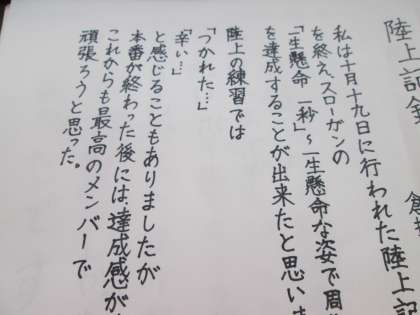 陸上記録
私は十月十九日に行われた陸上記
を終え、スローガンの
「一生懸命一秒」〜一生懸命な姿で周
を達成することが出来たと思いま
陸上の練習では
「つかれた…」
「辛い…」
と感じることもありましたが
本番が終わった後には、達成感が
これからも最高のメンバーで
頑張ろうと思った。